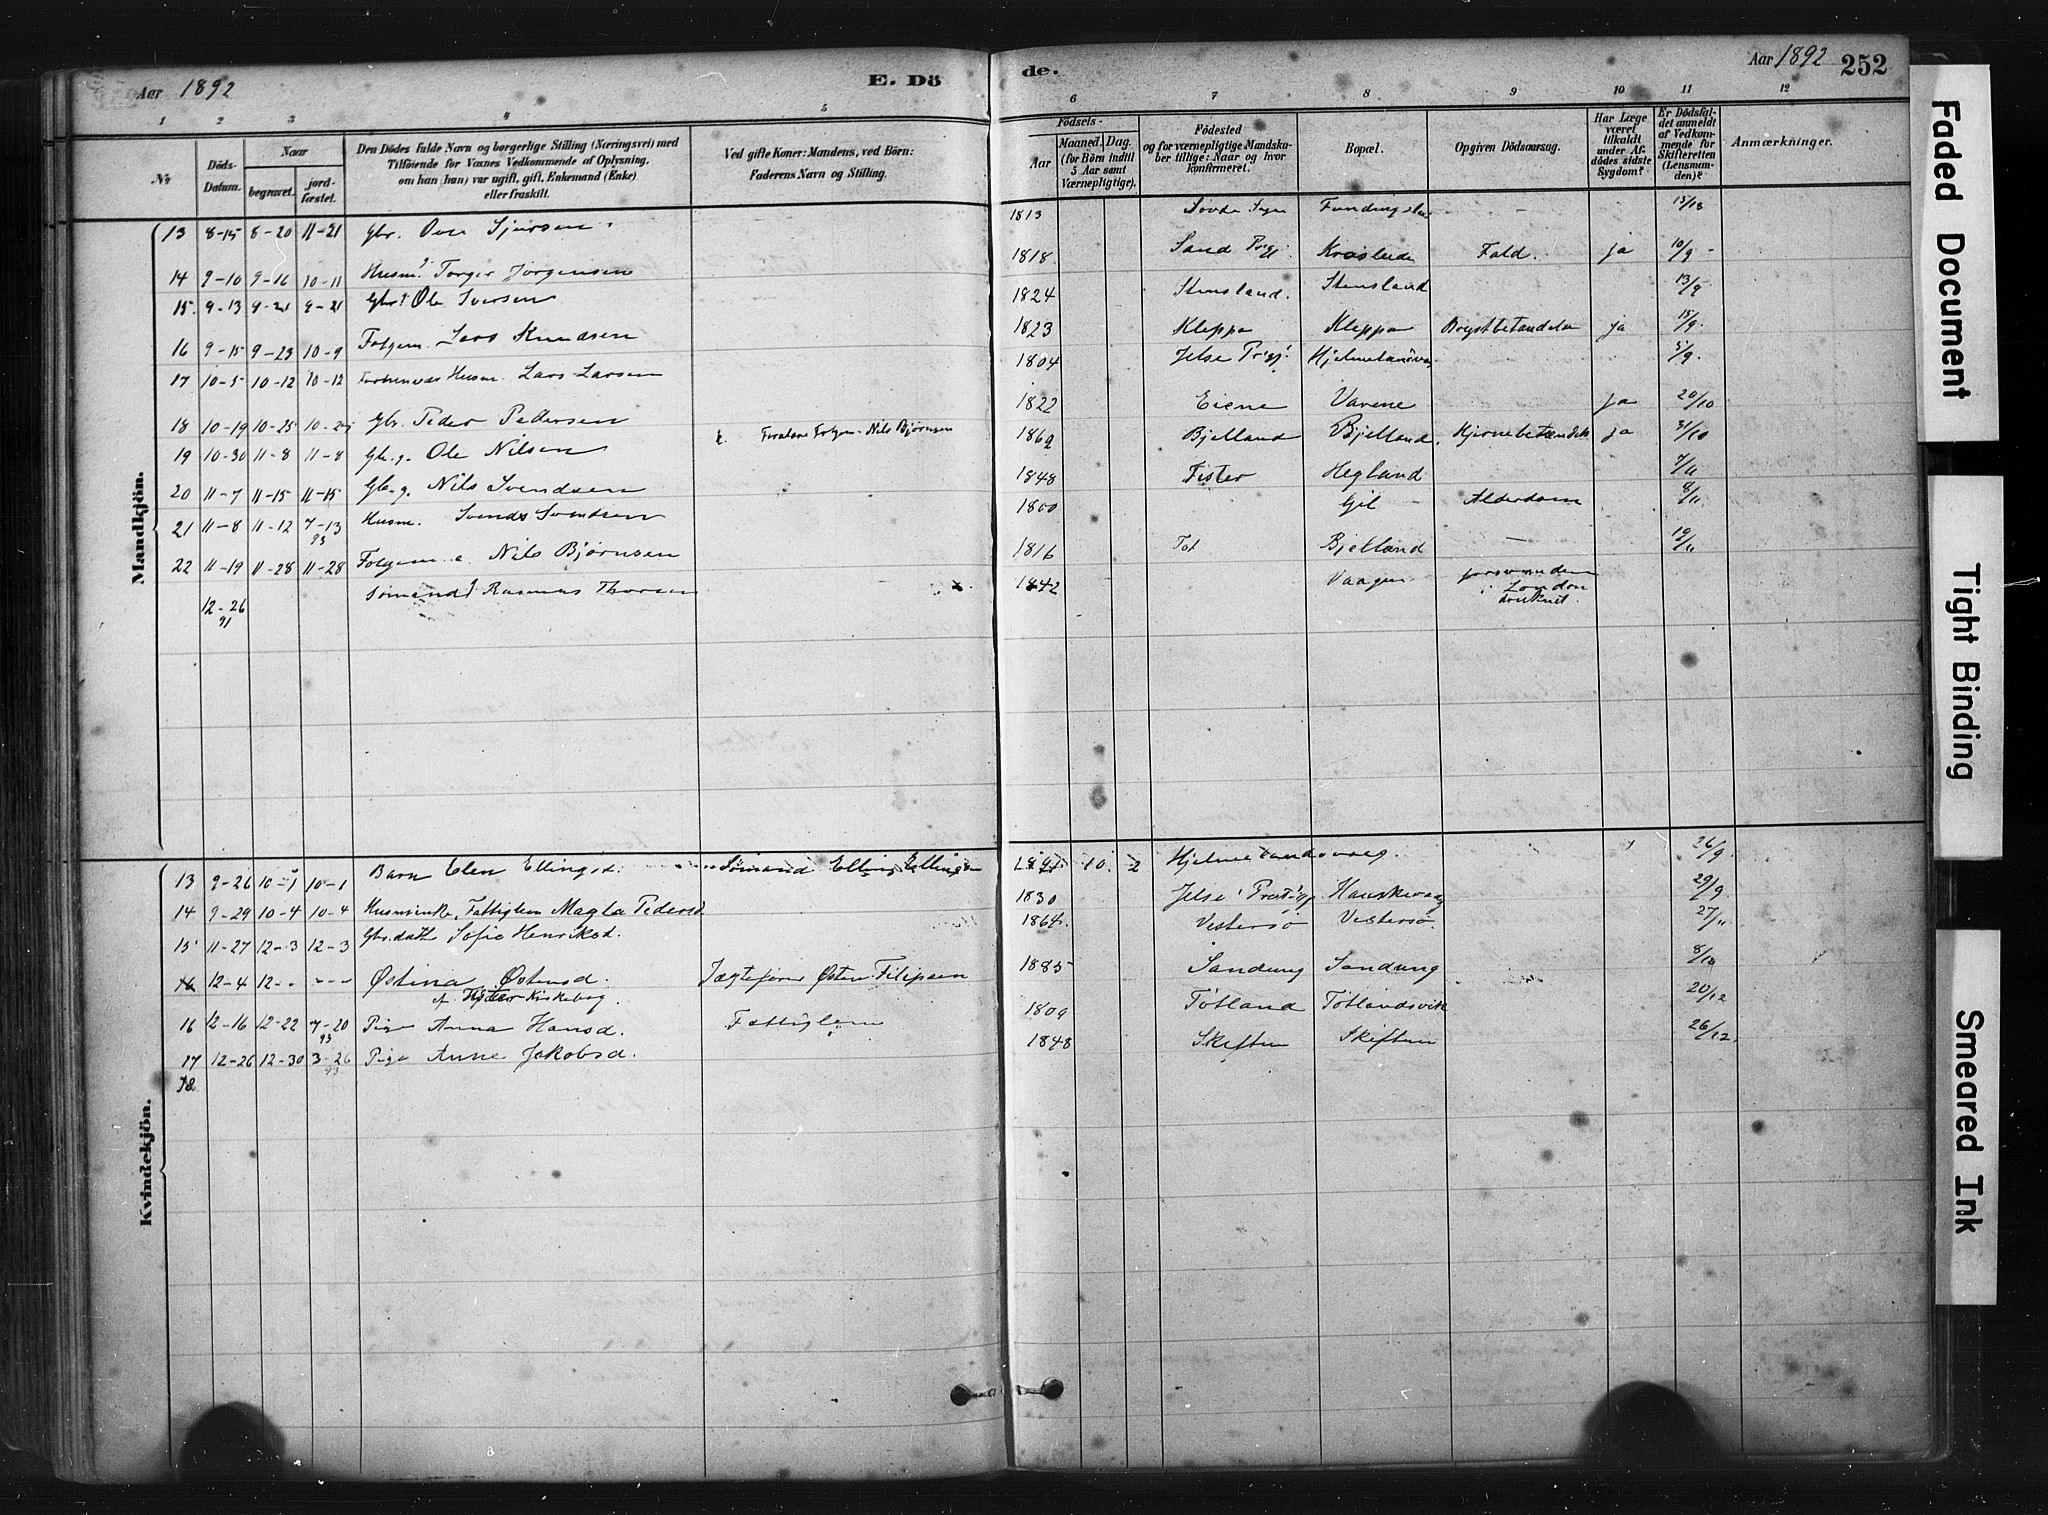 Aar 1892
E. Dö
de.
Aar 1892
252
1 2 3 4 5 6 7 8 9 10 11 12
No
Döds-Datum.
Naar
begravet.
jord-fæstet.
Den Dödes fulde Navn og borgerlige Stilling (Næringsvei) med
Tilföiende for Voxnes Vedkommende af Oplysning,
om han (hun) var ugift, gift, Enkemand (Enke)
eller fraskilt.
Ved gifte Koner: Mandens, ved Börn:
Faderens Navn og Stilling.
Födsels-
Aar
Maaned. Dag.
(for Börn indtil
5 Aar samt
Værnepligtige).
Födested
og for værnepligtige Mandska-
ber tillige: Naar og hvor
konfirmeret.
Bopæl.
Opgiven Dödsaarsag.
Har Læge
været
tilkaldt
under Af-
dødes sidste
Sygdom?
Er Dödsfal-
det anmeldt
af Vedkom-
mende for
Skifteretten
(Lensman-
den)?
Anmærkninger.
Mandkjön.
13 8-15 8-20 11-21 Gbr. Ove Sjursen 1813 —
14 9-10 9-16 10-11 Husm. Torger Jörgensen 1818 Sand Fald. ja 10/9
15. 9-13 9-21 9-21 Gbr. Ole Iversen 1824 Stensland. Stensland 13/9
16 9-15 9-23 10-9 Folgem. Lars Knudsen 1823 Kleppa Kleppa ja 15/9.
17 10-5 10-12 10-12 Husm. Lars Larsen 1804 Jelse 5/9.
18 10-19 10-25 Gbr. Peder Pedersen 1822 Eiene Varene ja 20/10
19 10-30 11-8 11-8 Gbr. g. Ole Nilsen Nils Bjørnsen 1862 Bjelland Bjelland ja 31/10
20 11-7 11-15 11-15 Gbr. g. Nils Svendsen 1848 Fister Hegland 7/11
21 11-8 11-12 7-13 93 Husm. Svend Svendsen 1800 Gil Alderdom 8/11.
22 11-19 11-28 11-28 Folgem. Nils Bjørnsen 1816 Bjelland — 19/11
12-26 91 Sømand Rasmus Thorsen 1842 Vaagen forsvunden i London druknet.
Kvindekjön.
13 9-26 10-1 10-1 Barn Elen Ellingsd. Sømand Elling Ellingsen 1891 10. 2 26/9
14 9-29 10-4 10-4 Magla Pedersd 1830 Jelse 29/9
15 11-27 12-3 12-3 Gbr. datt Sofie Henriksd. 1864. Vestersø Vestersø. 27/11
16 12-4 12-- --- Østina Østensd. Jægtefører Østen Filipsen 1885 Sandung Sandung
16 12-16 12-22 7-20 93 Pige Anna Hansd. Fattiglem 1809 Tötland Tötlandsvik 20/12
17 12-26 12-30 3-26 93 Pige Anne Jakobsd. 1848 Skiftun Skiftun 26/12.
18
Faded Document
Tight Binding
Smeared Ink